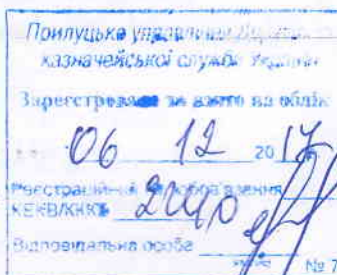 Прилуцьке управління Державної
казначейської служби України
Зареєстровано та взято на облік
06 12 2017
Реєстраційний зобов'язання
КЕКВ/ККК 2240
Відповідальна особа
№ 7